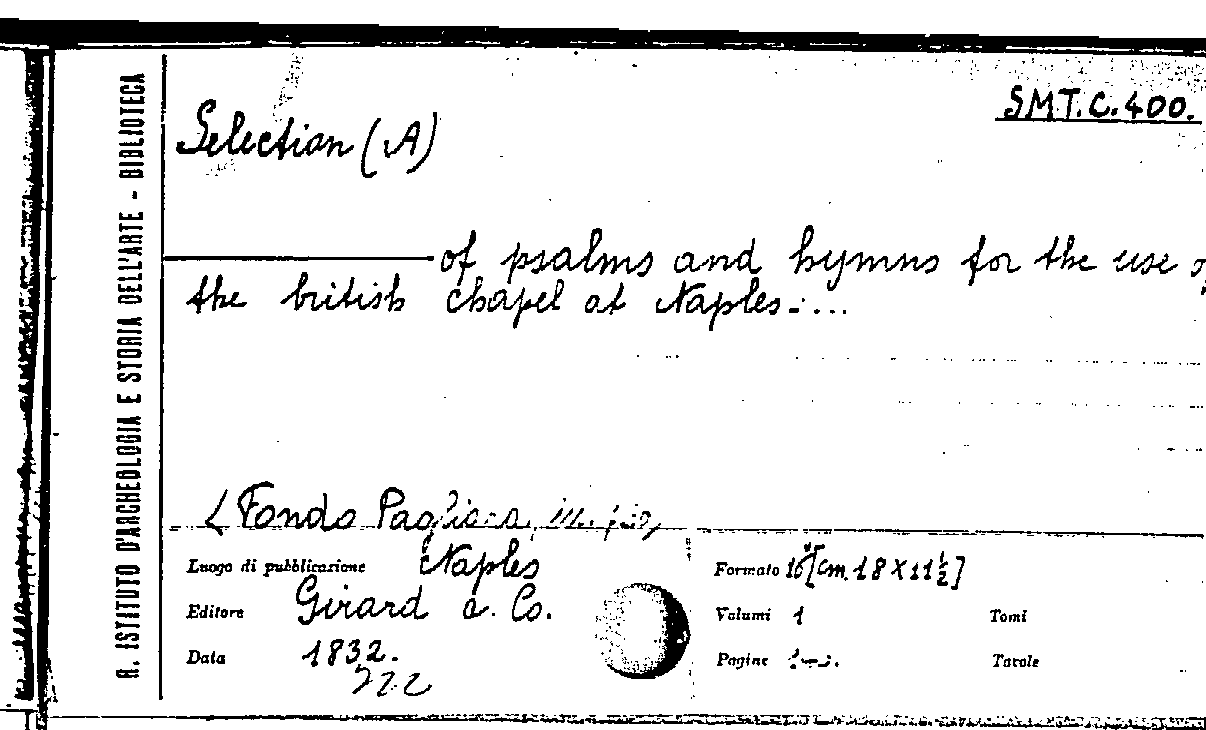 R. ISTITUTO D'ARCHEOLOGIA E STORIA DELL'ARTE - BIBLIOTECA
SMT.C.400.
Selection (A)
of psalms and hymns for the use
the british chapel at Naples-:...
(Fondo Pagliara,
Luogo di pubblicazione Naples
Formato 16° [cm. 18 X 11½]
Editore Girard & Co.
Volumi 1 Tomi
Data 1832.
Pagine Tavole